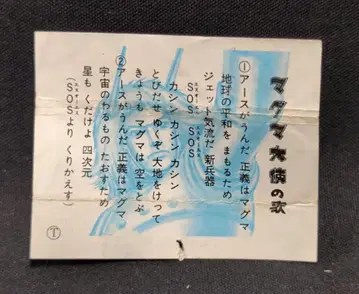 マグマ大使の歌
①アースがうんだ 正義はマグマ
地球の平和を まもるため
ジェット気流だ 新兵器
SOS SOS
エスオーエス エスオーエス
カシン カシン カシン
とびだせ ゆくぞ 大地をけって
きょうも マグマは 空をとぶ
②アースがうんだ 正義はマグマ
宇宙のわるもの たおすため
星も くだけよ 四次元
(SOSより くりかえす)
エスオーエス
Ⓣ